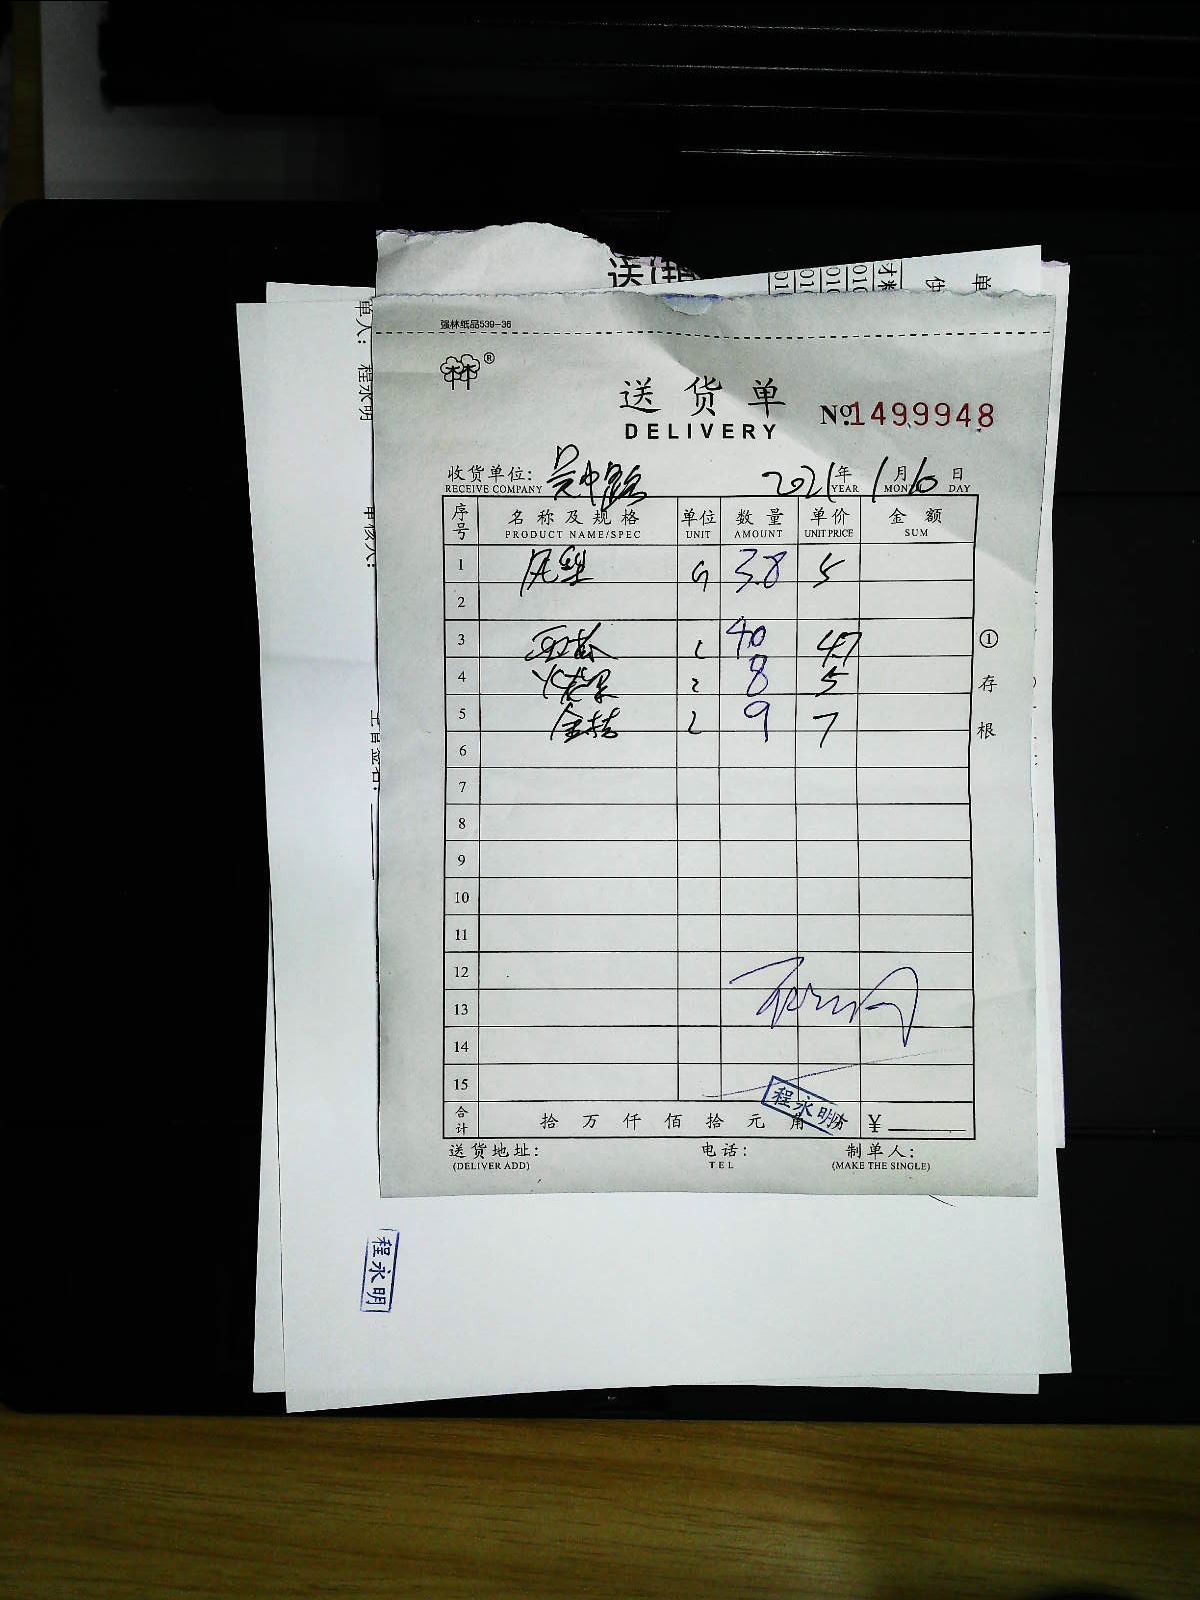 送(排
单
强林纸品539-36
林®
送货单
DELIVERY
№1499948
收货单位: 吴中路
RECEIVE COMPANY
2021年1月10日
YEAR MONTH DAY
序号 名称及规格 单位 数量 单价 金额
PRODUCT NAME/SPEC UNIT AMOUNT UNIT PRICE SUM
1 凤梨 3.8 5
2
3 西瓜 40 4.7
4 火龙果 8 5
5 金桔 9 7
6
7
8
9
10
11
12
13
14
15
合计 拾 万 仟 佰 拾 元 角 ¥
程永明
送货地址: 电话: 制单人:
(DELIVER ADD) TEL (MAKE THE SINGLE)
①存根
单人: 程永明
审核人:
程永明